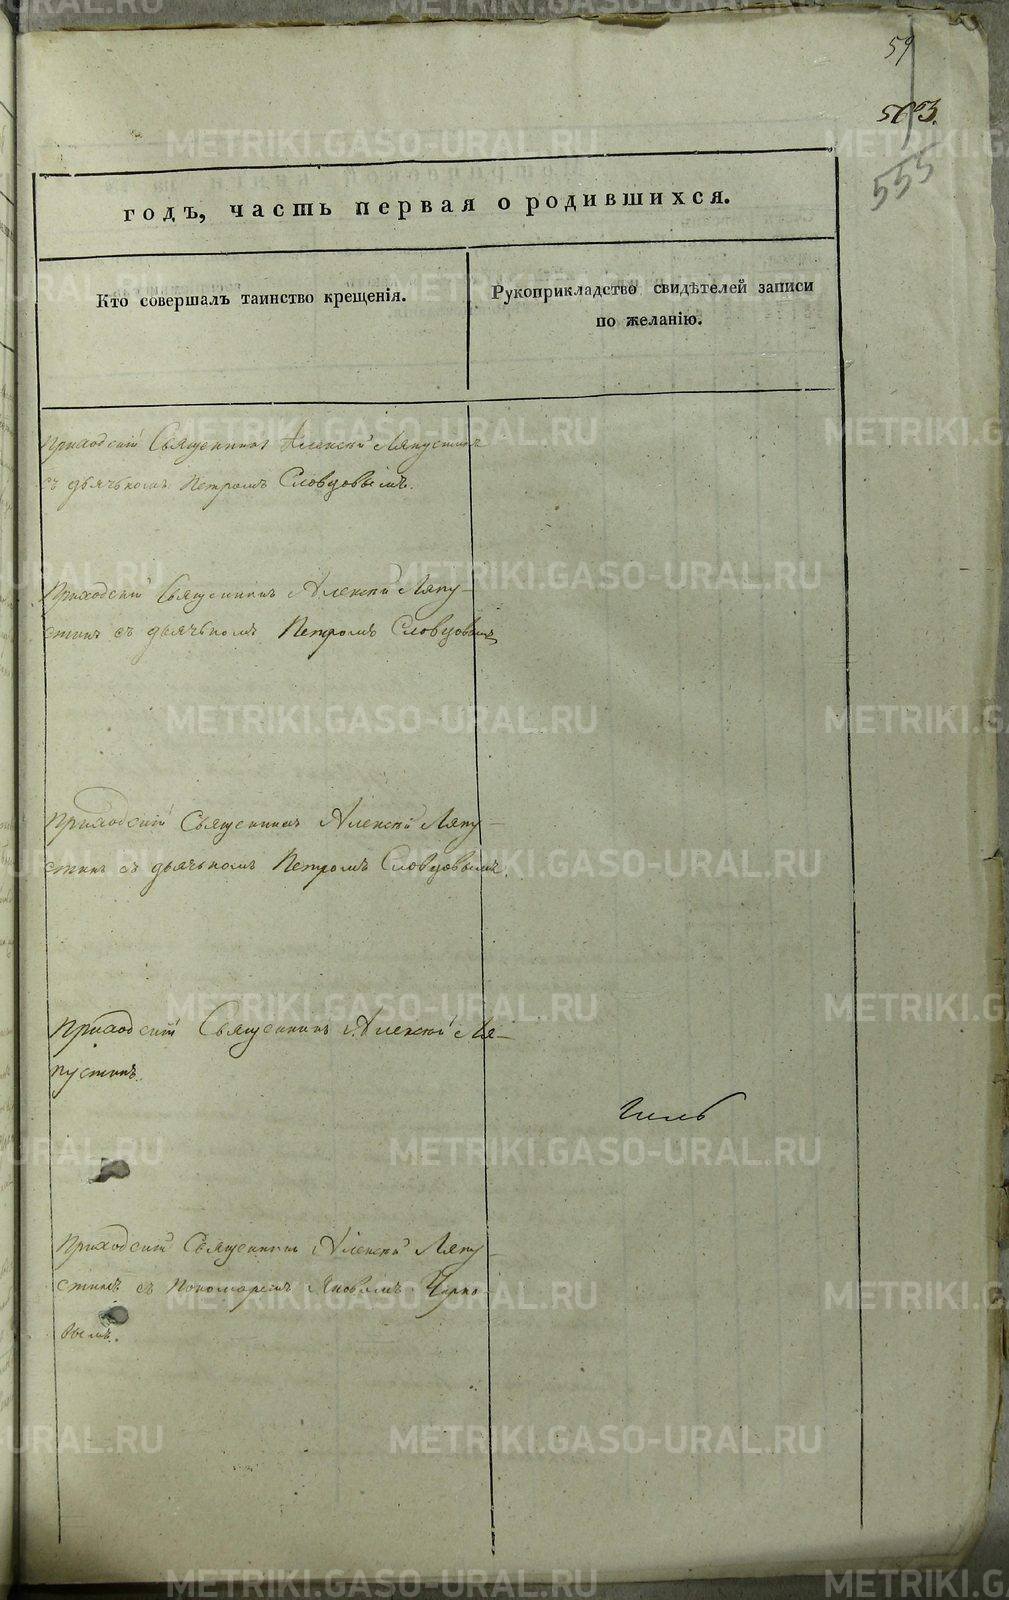 59
563.
555
годъ, часть первая о родившихся.
Кто совершалъ таинство крещенія.
Рукоприкладство свидѣтелей записи
по желанію.
Приходскій Священникъ Алексій Ляпустинъ
съ дьячькомъ Петромъ Словцовымъ.
Приходскій Священникъ Алексій Ляпу-
стинъ съ дьячькомъ Петромъ Словцовымъ
Приходскій Священникъ Алексій Ляпу-
стинъ съ дьячькомъ Петромъ Словцовымъ.
Приходскій Священникъ Алексій Ля-
пустинъ.
Приходскій Священникъ Алексій Ляпу-
стинъ съ Пономаремъ Яковомъ
вымъ.
METRIKI.GASO-URAL.RU